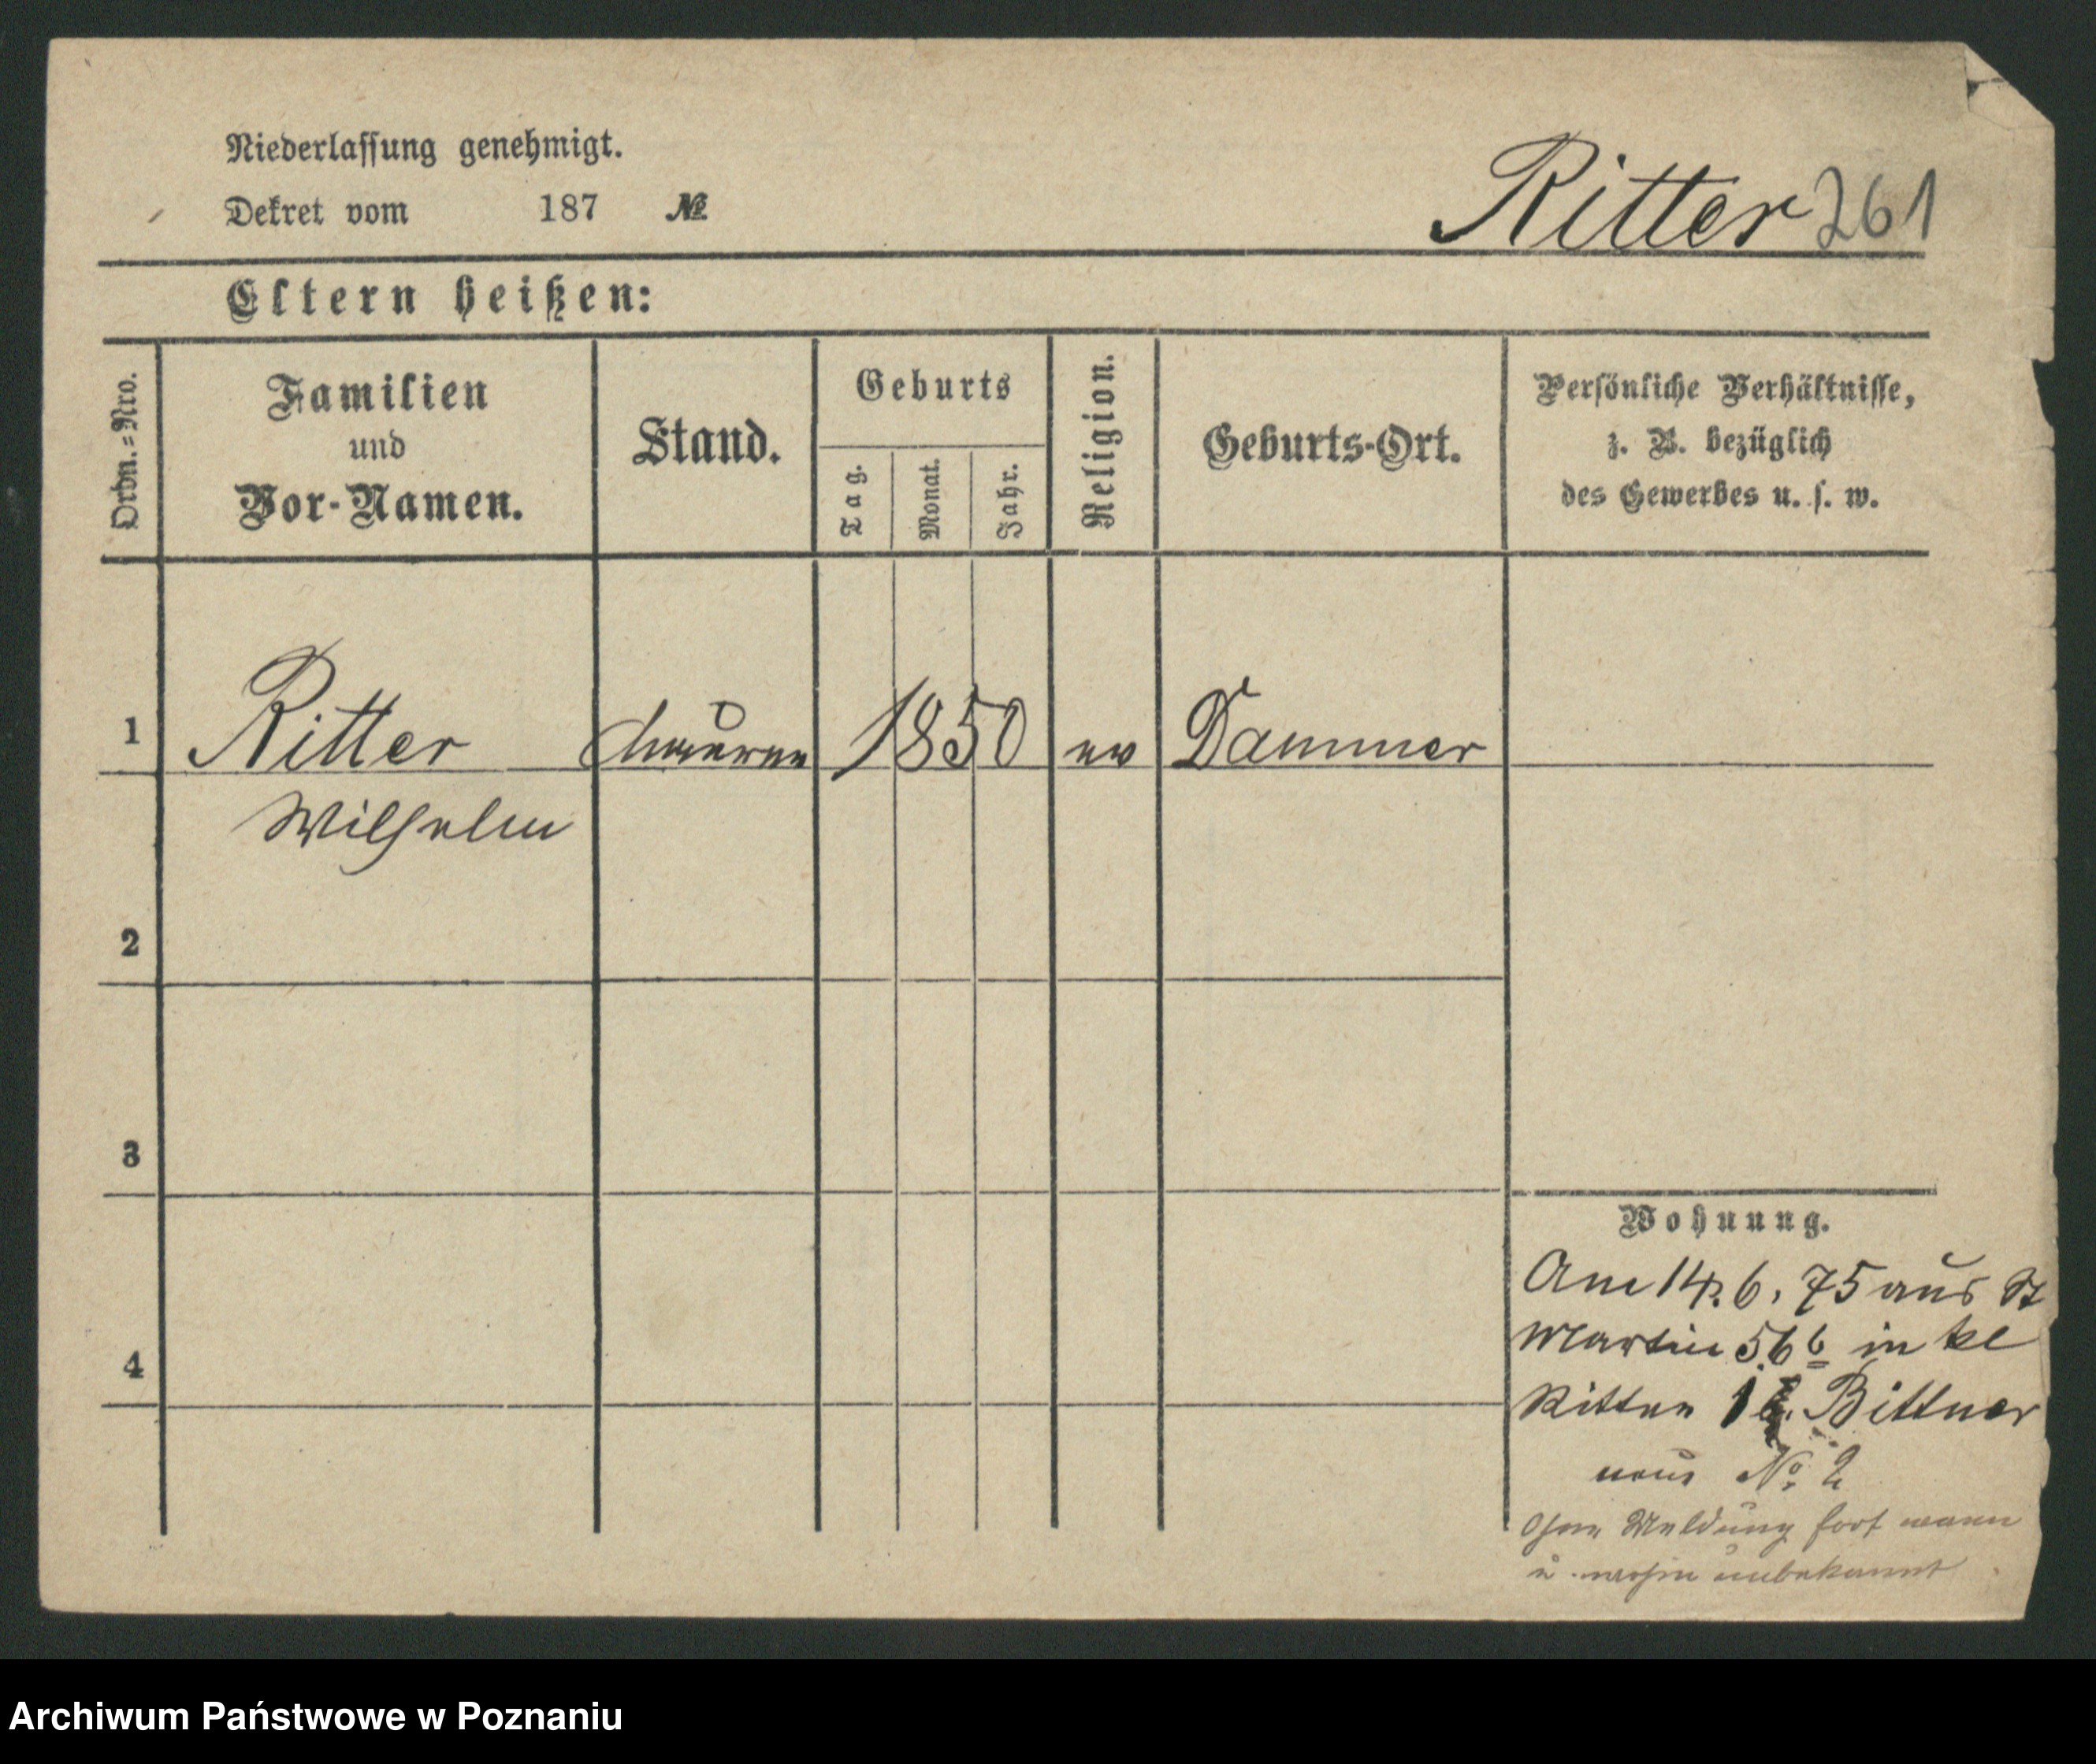 Niederlassung genehmigt.
Dekret vom 187 №
Ritter 261
Eltern heißen:
Ordn.=Nro.
Familien
und
Vor-Namen.
Stand.
Geburts
Tag.
Monat.
Jahr.
Religion.
Geburts-Ort.
Persönliche Verhältnisse,
z. B. bezüglich
des Gewerbes u. s. w.
1 Ritter Maurer 1850 ev Dammer
Wilhelm
2
3
4
Wohnung.
Am 14. 6. 75 aus St
Martin 56 6 in kl
Ritter 1 Bittner
№ 2
Ohne Meldung fort wann
u. wohin unbekannt
Archiwum Państwowe w Poznaniu